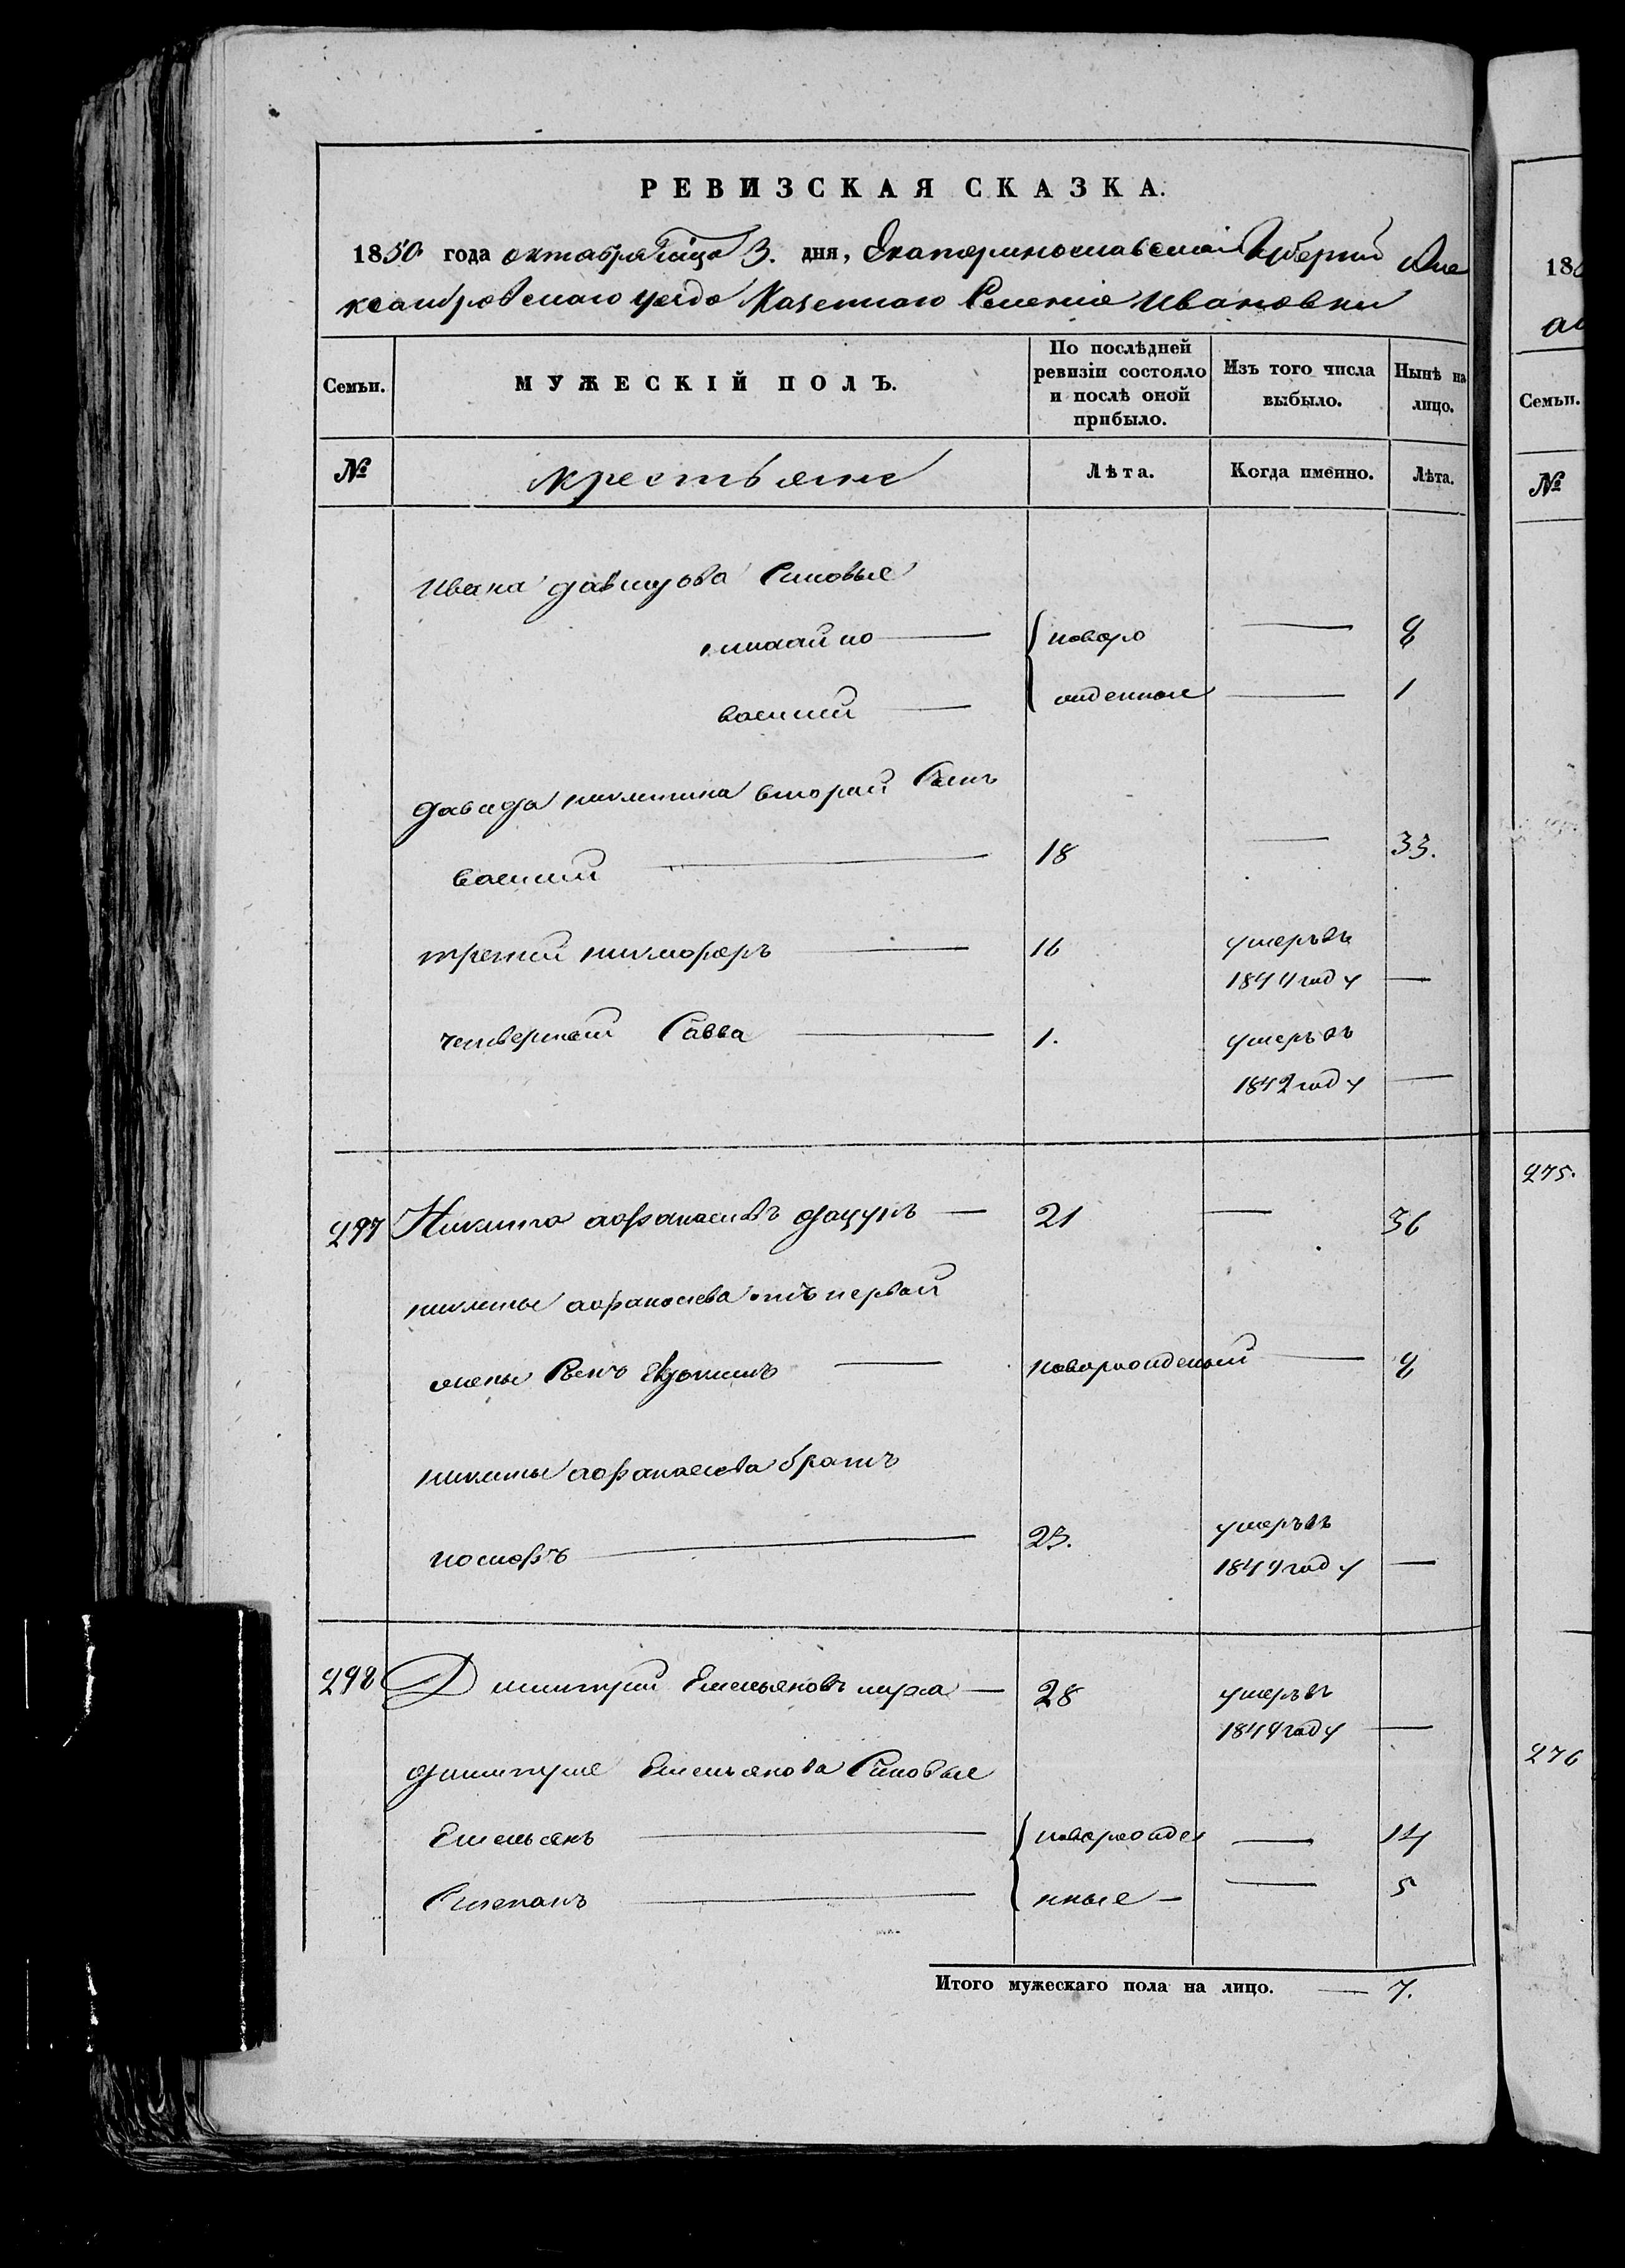 РЕВИЗСКАЯ СКАЗКА.
1850 года октября месяца 3. дня, Екатеринославской Губернии Але
ксандровскаго уезда Казенного Селения Ивановки
Семьи.
МУЖЕСКІЙ ПОЛЪ.
По послѣдней ревизіи состояло и послѣ оной прибыло.
Изъ того числа выбыло.
Нынѣ на лицо.
№
крестьяне
Лѣта.
Когда именно.
Лѣта.
Ивана давидова Сыновые
михайло новоро 8
василий жденные 1
давида никитина второй Сынъ
василий 18 33.
третий никифоръ 16 умеръ въ
1844 году
четвертый Савва 1. умеръ въ
1842 году
297 Никита афанасиевъ 21 36
никиты афанасиева отъ первой
жены Сынъ новорожденый 8
никиты афанасиева братъ
иосифъ 23. умеръ въ
1844 году
298 Димитрий Емельяновъ 28 умеръ въ
1844 году
димитрия Емельянова Сыновые
Емельянъ новорожде 14
Степанъ нные 5
Итого мужескаго пола на лицо. 7.
18
Семьи.
№
275.
276